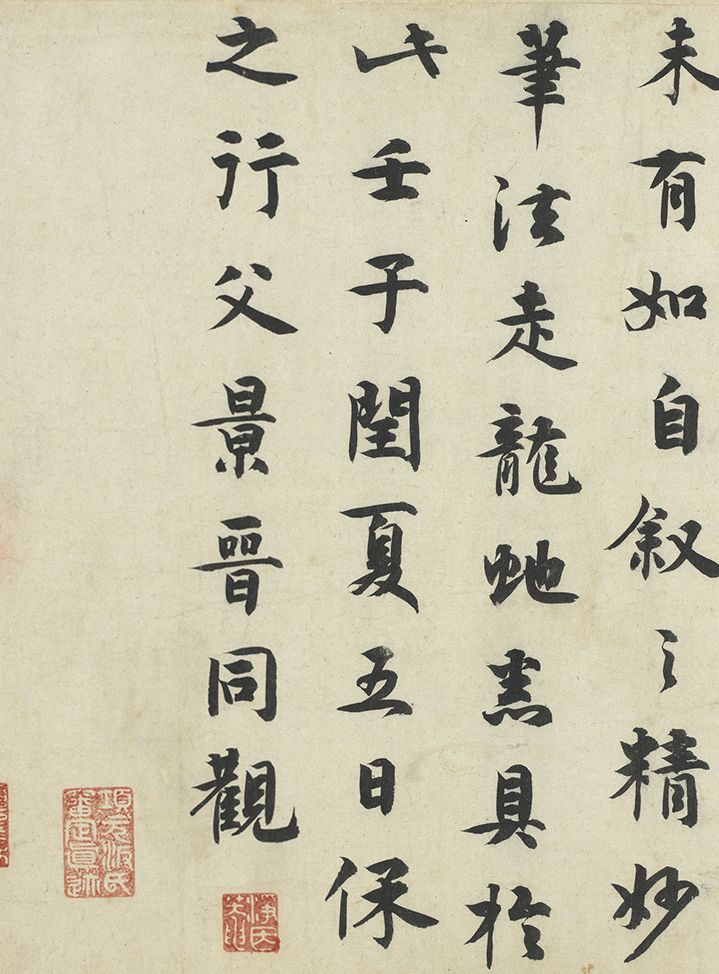 未有如自叙之精妙
筆法走龍虵悉具於
此壬子閏夏五日保
之行父景晉同觀
項元汴氏審定真迹